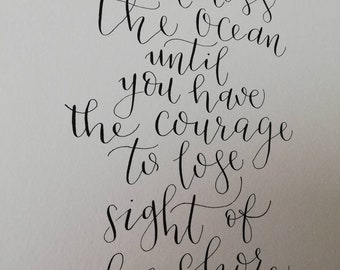 the ocean
until
you have
the courage
to lose
sight of
shore